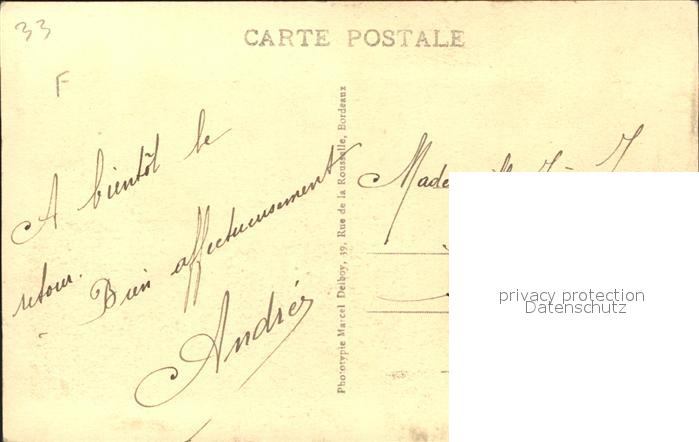 33
F
CARTE POSTALE
A bientôt le
retour.
Bien affectueusement
Andrée
Phototypie Marcel Delboy, 39, Rue de la Rousselle, Bordeaux
privacy protection
Datenschutz